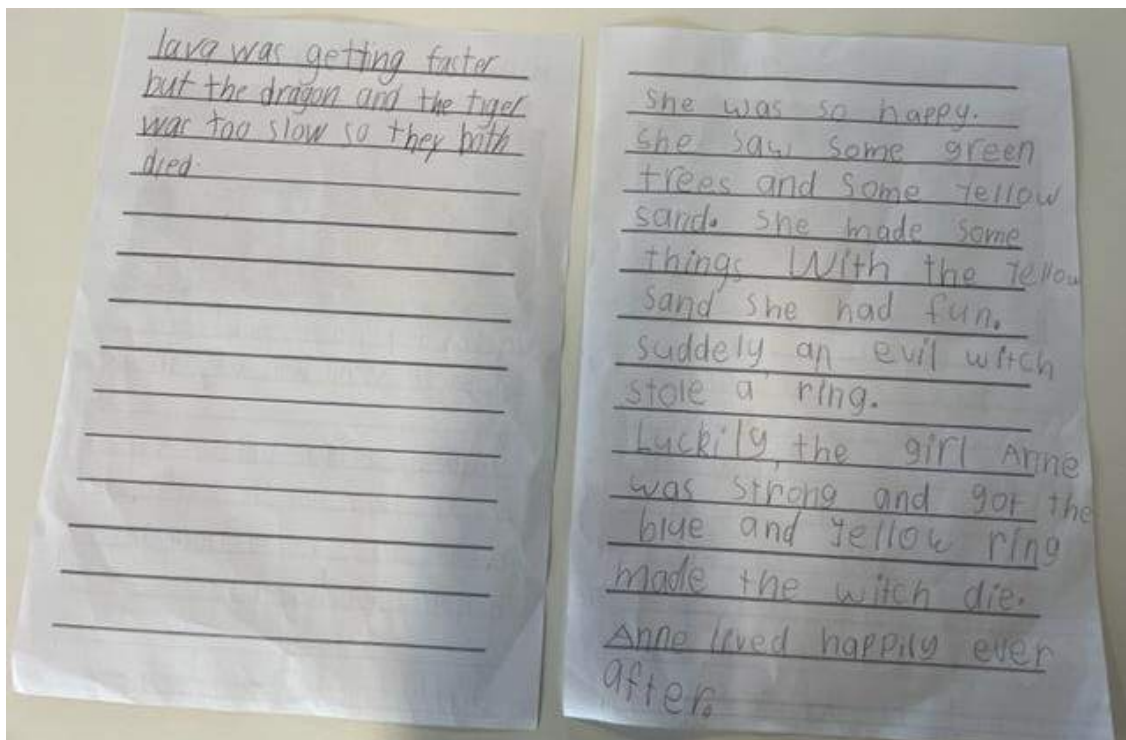 lava was getting faster
but the dragon and the tiger
was too slow so they both
died.
She was so happy.
She saw some green
trees and some Yellow
sand. She made some
things With the Yellow
sand she had fun.
suddely, an evil witch
stole a ring.
Luckily, the girl Anne
was strong and got the
blue and Yellow ring
made the witch die.
Anne lived happily ever
after.